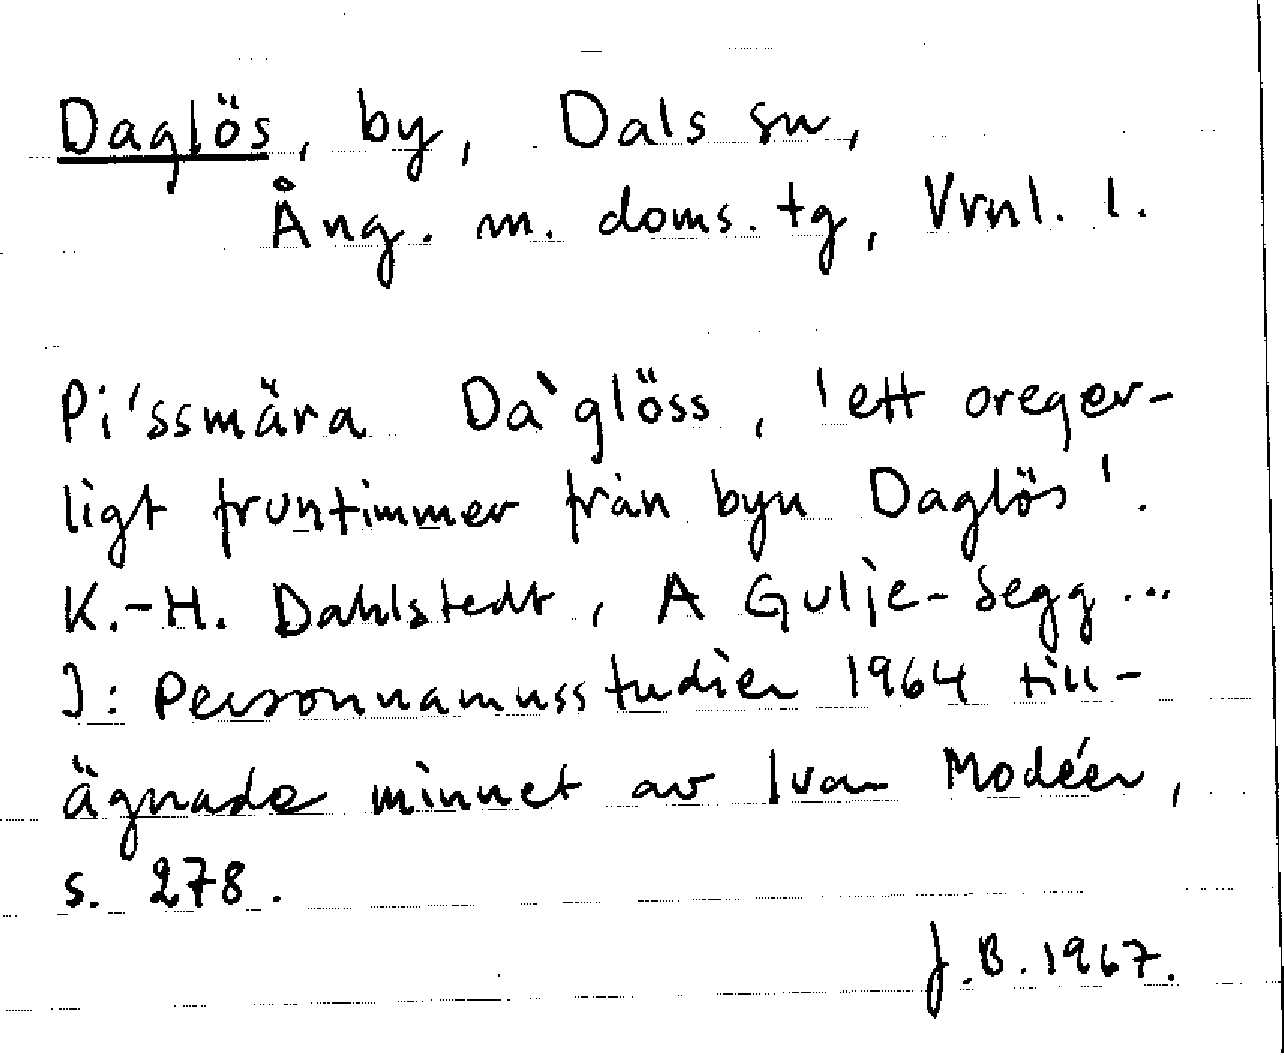 Daglös, by, Dals sn,
Ång. m. doms. tg, Vrnl. l.
Pi'ssmära Da`glöss, 'ett oreger-
ligt fruntimmer från byn Daglös'.
K.-H. Dahlstedt, A Gulje-Segg...
I: Personnamnsstudier 1964 till-
ägnade minnet av Ivar Modéer,
s. 278.
J.B. 1967.